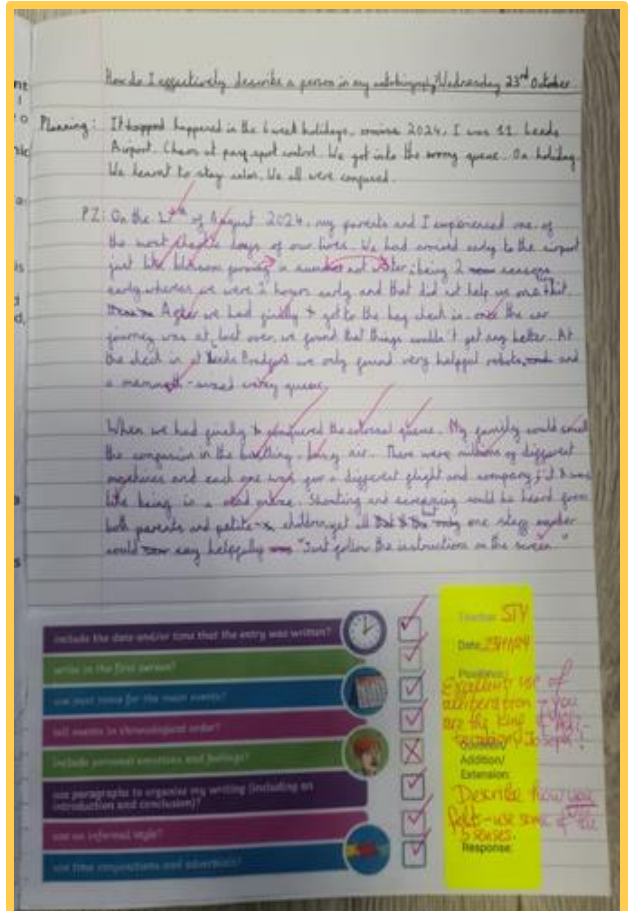 How do I effectively describe a person in my autobiography? Wednesday 23rd October.
Planning: It happened in the 6 week holidays, 2024, I was 11. Leeds
Airport. Chaos at passport control. We got into the wrong queue. On holiday.
We learnt to stay calm. We all were confused.
P2: On the 27th of August 2024, my parents and I experienced one of
the most chaotic days of our lives. We had arrived early to the airport
just like blossom growing in winter; being 2 seasons
early whereas we were 2 hours early and that did not help us one bit.
After we had finally got to the bag check in once the car
journey was at last over, we found that things couldn't get any better. At
the check in at Leeds Bradford we only found very helpful robots, and
a mammoth-sized queue.
When we had finally conquered the colossal queue. My family could smell
the confusion in the air. There were millions of different
machines and each one was for a different flight and company; it was
like being in a maze. Shouting and screaming could be heard from
both parents and petite children, yet all one staff member
would say helpfully "Just follow the instructions on the screen."
include the date and/or time that the entry was written?
write in the first person?
use past tense for the main events?
tell events in chronological order?
include personal emotions and feelings?
use paragraphs to organise my writing (including an
introduction and conclusion)?
use an informal style?
use time conjunctions and adverbials?
Teacher: STY
Date:
Positives:
Excellent use of
alliteration - you
are the king of
Joseph!
Addition/
Extension:
Describe how you
felt - use some of the
5 senses.
Response: